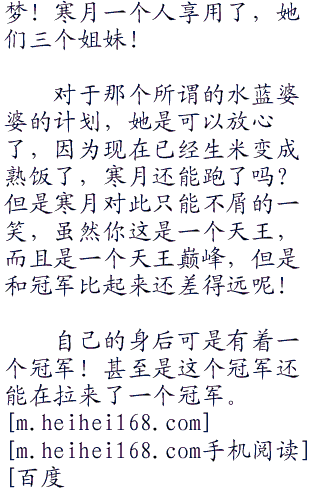 梦！寒月一个人享用了，她
们三个姐妹！
对于那个所谓的水蓝婆
婆的计划，她是可以放心
了，因为现在已经生米变成
熟饭了，寒月还能跑了吗？
但是寒月对此只能不屑的一
笑，虽然你这是一个天王，
而且是一个天王巅峰，但是
和冠军比起来还差得远呢！
自己的身后可是有着一
个冠军！甚至是这个冠军还
能在拉来了一个冠军。
[m.heihei168.com]
[m.heihei168.com手机阅读]
[百度